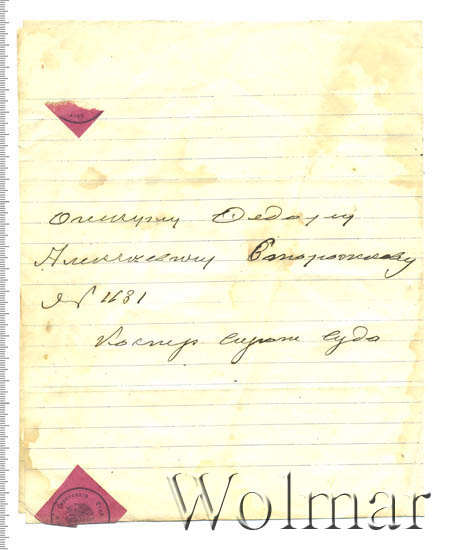 Опекуну Федору
Алексеевичу Сторожкову
№ 1631
Костр Сирот Суда
Wolmar